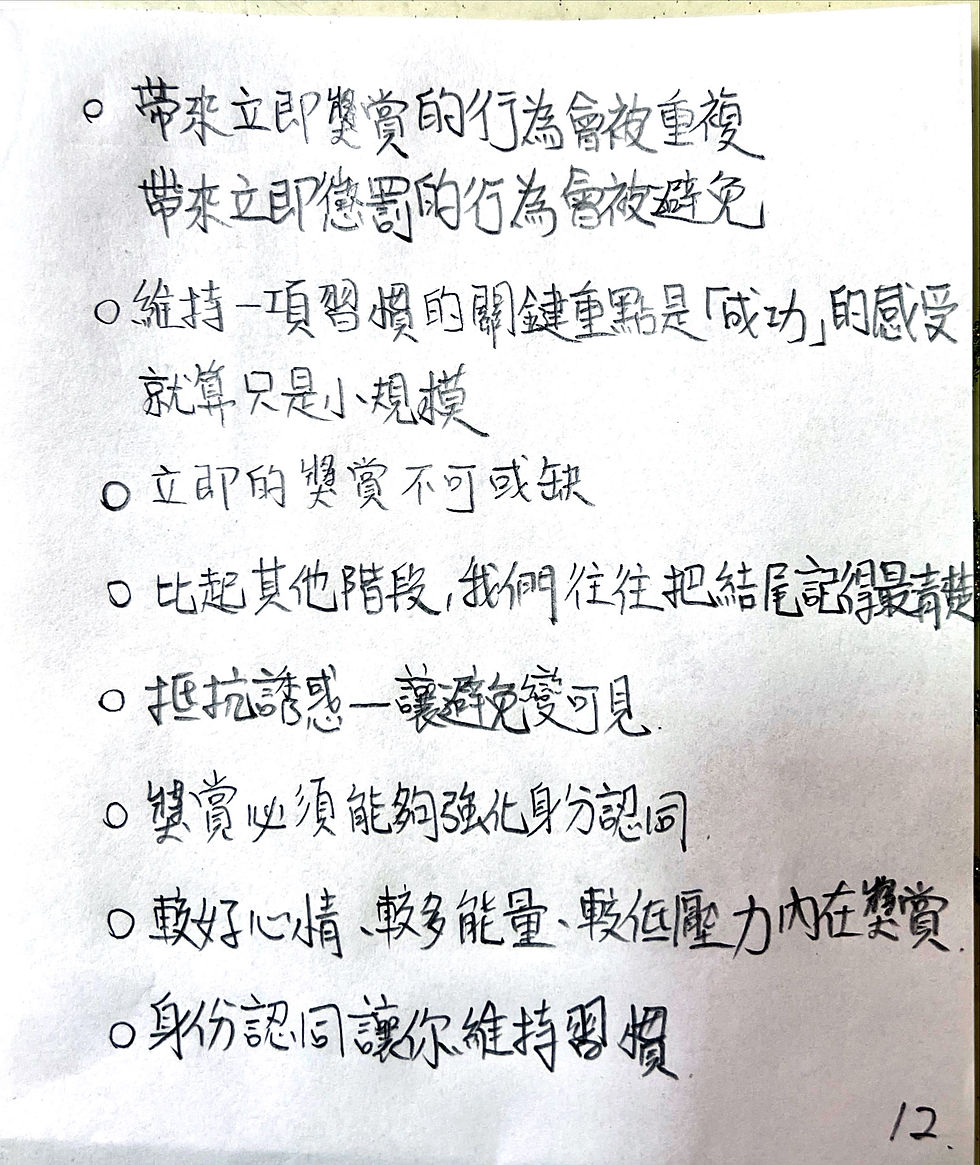 ○ 帶來立即獎賞的行為會被重複
帶來立即懲罰的行為會被避免
○ 維持一項習慣的關鍵重點是「成功」的感受
就算只是小規模
○ 立即的獎賞不可或缺
○ 比起其他階段,我們往往把結尾記得最清楚
○ 抵抗誘惑—讓避免變可見.
○ 獎賞必須能夠強化身分認同.
○ 較好心情、較多能量、較低壓力內在獎賞.
○ 身份認同讓你維持習慣.
12.